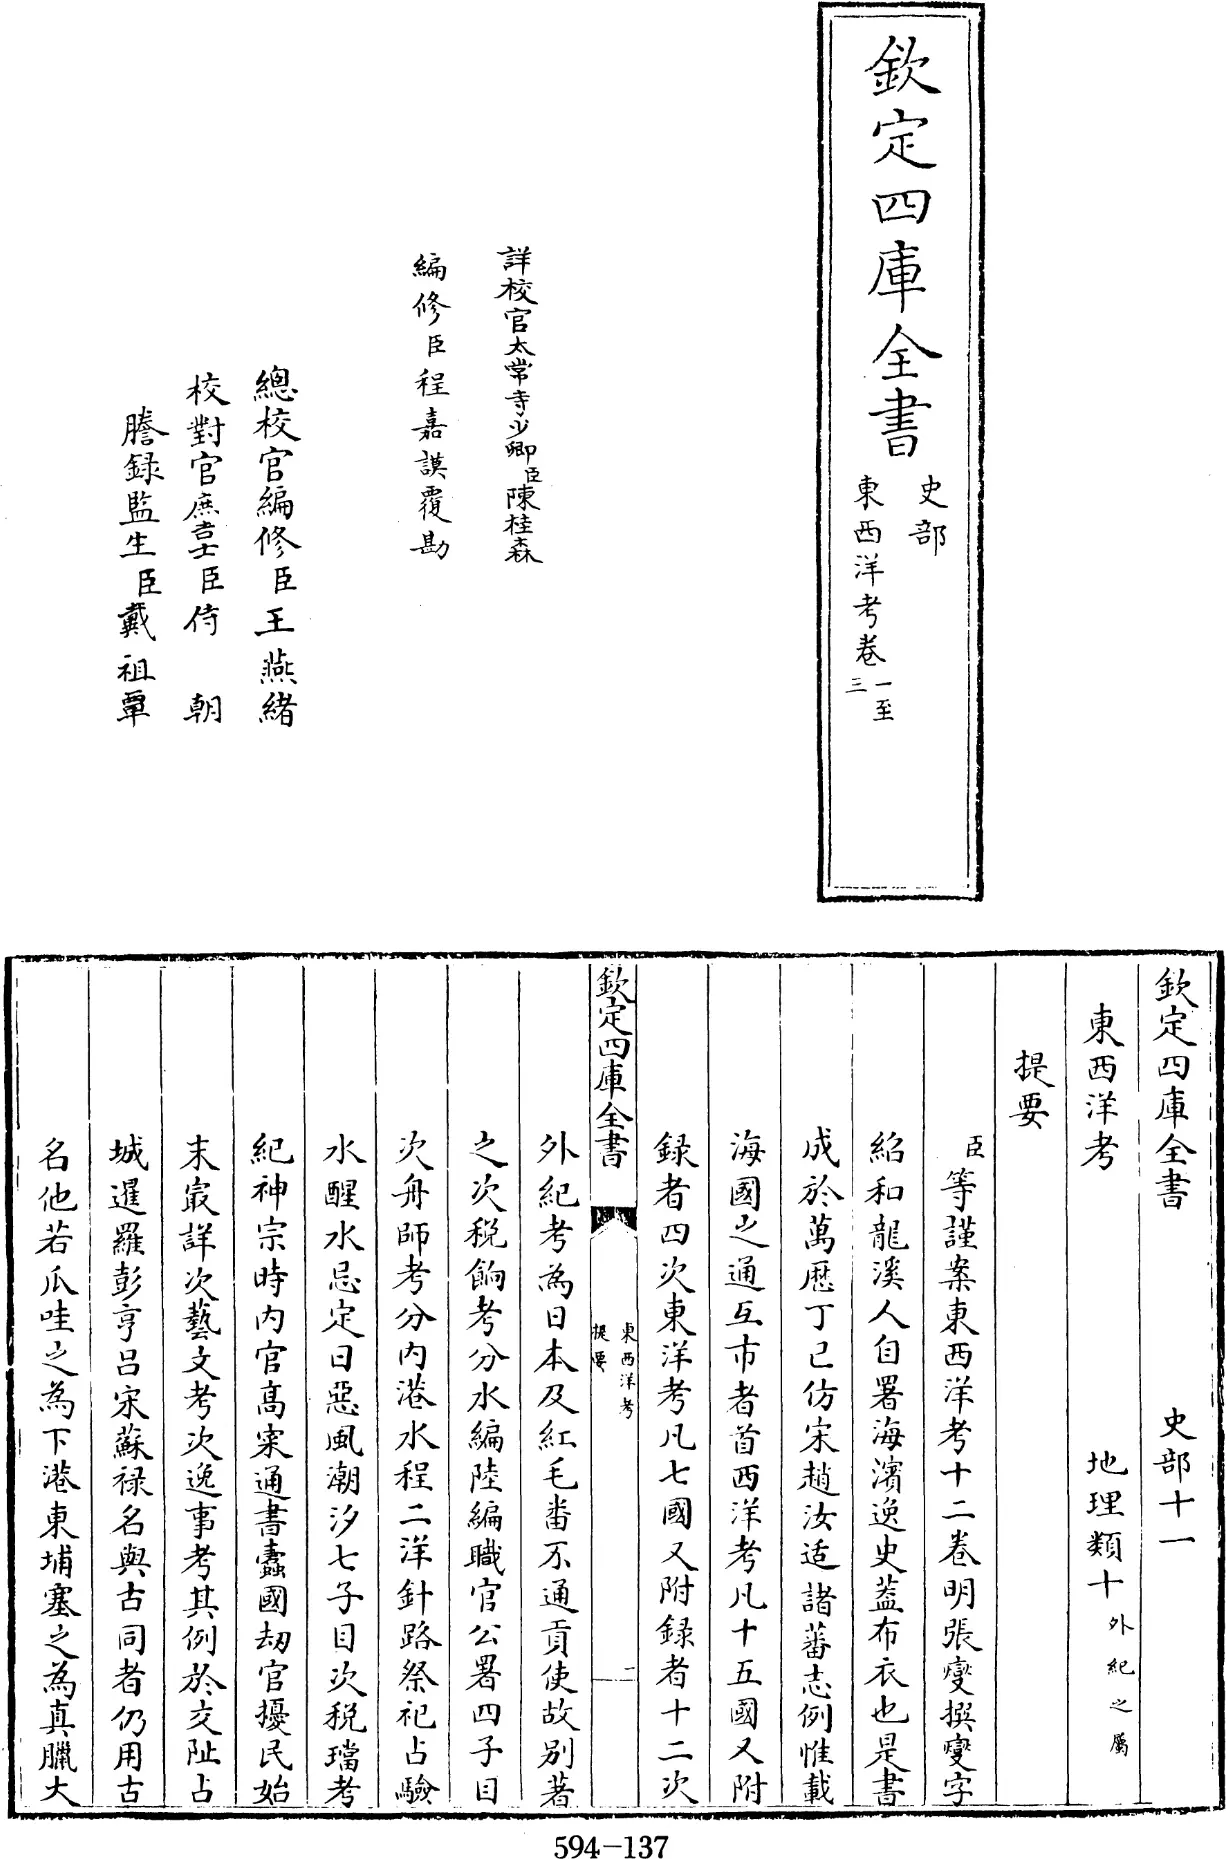 欽定四庫全書
史部
東西洋考卷一至三
詳校官太常寺少卿臣陳桂森
編修臣程嘉謨覆勘
總校官編修臣王燕緒
校對官庶吉士臣侍朝
謄録監生臣戴祖覃
欽定四庫全書 史部十一
東西洋考 地理類十外紀之屬
提要
臣等謹案東西洋考十二卷明張燮撰燮字
紹和龍溪人自署海濱逸史葢布衣也是書
成於萬厯丁巳仿宋趙汝适諸蕃志例惟載
海國之通互市者首西洋考凡十五國又附
録者四次東洋考凡七國又附録者十二次
欽定四庫全書
東西洋考
提要
二
外紀考為日本及紅毛番不通貢使故別著
之次税餉考分水編陸編職官公署四子目
次舟師考分内港水程二洋針路祭祀占驗
水醒水忌定日惡風潮汐七子目次税璫考
紀神宗時内官髙寀通書蠧國刼官擾民始
末㝡詳次藝文考次逸事考其例於交阯占
城暹羅彭亨吕宋蘇禄名與古同者仍用古
名他若瓜哇之為下港東埔塞之為真臘大
594-137